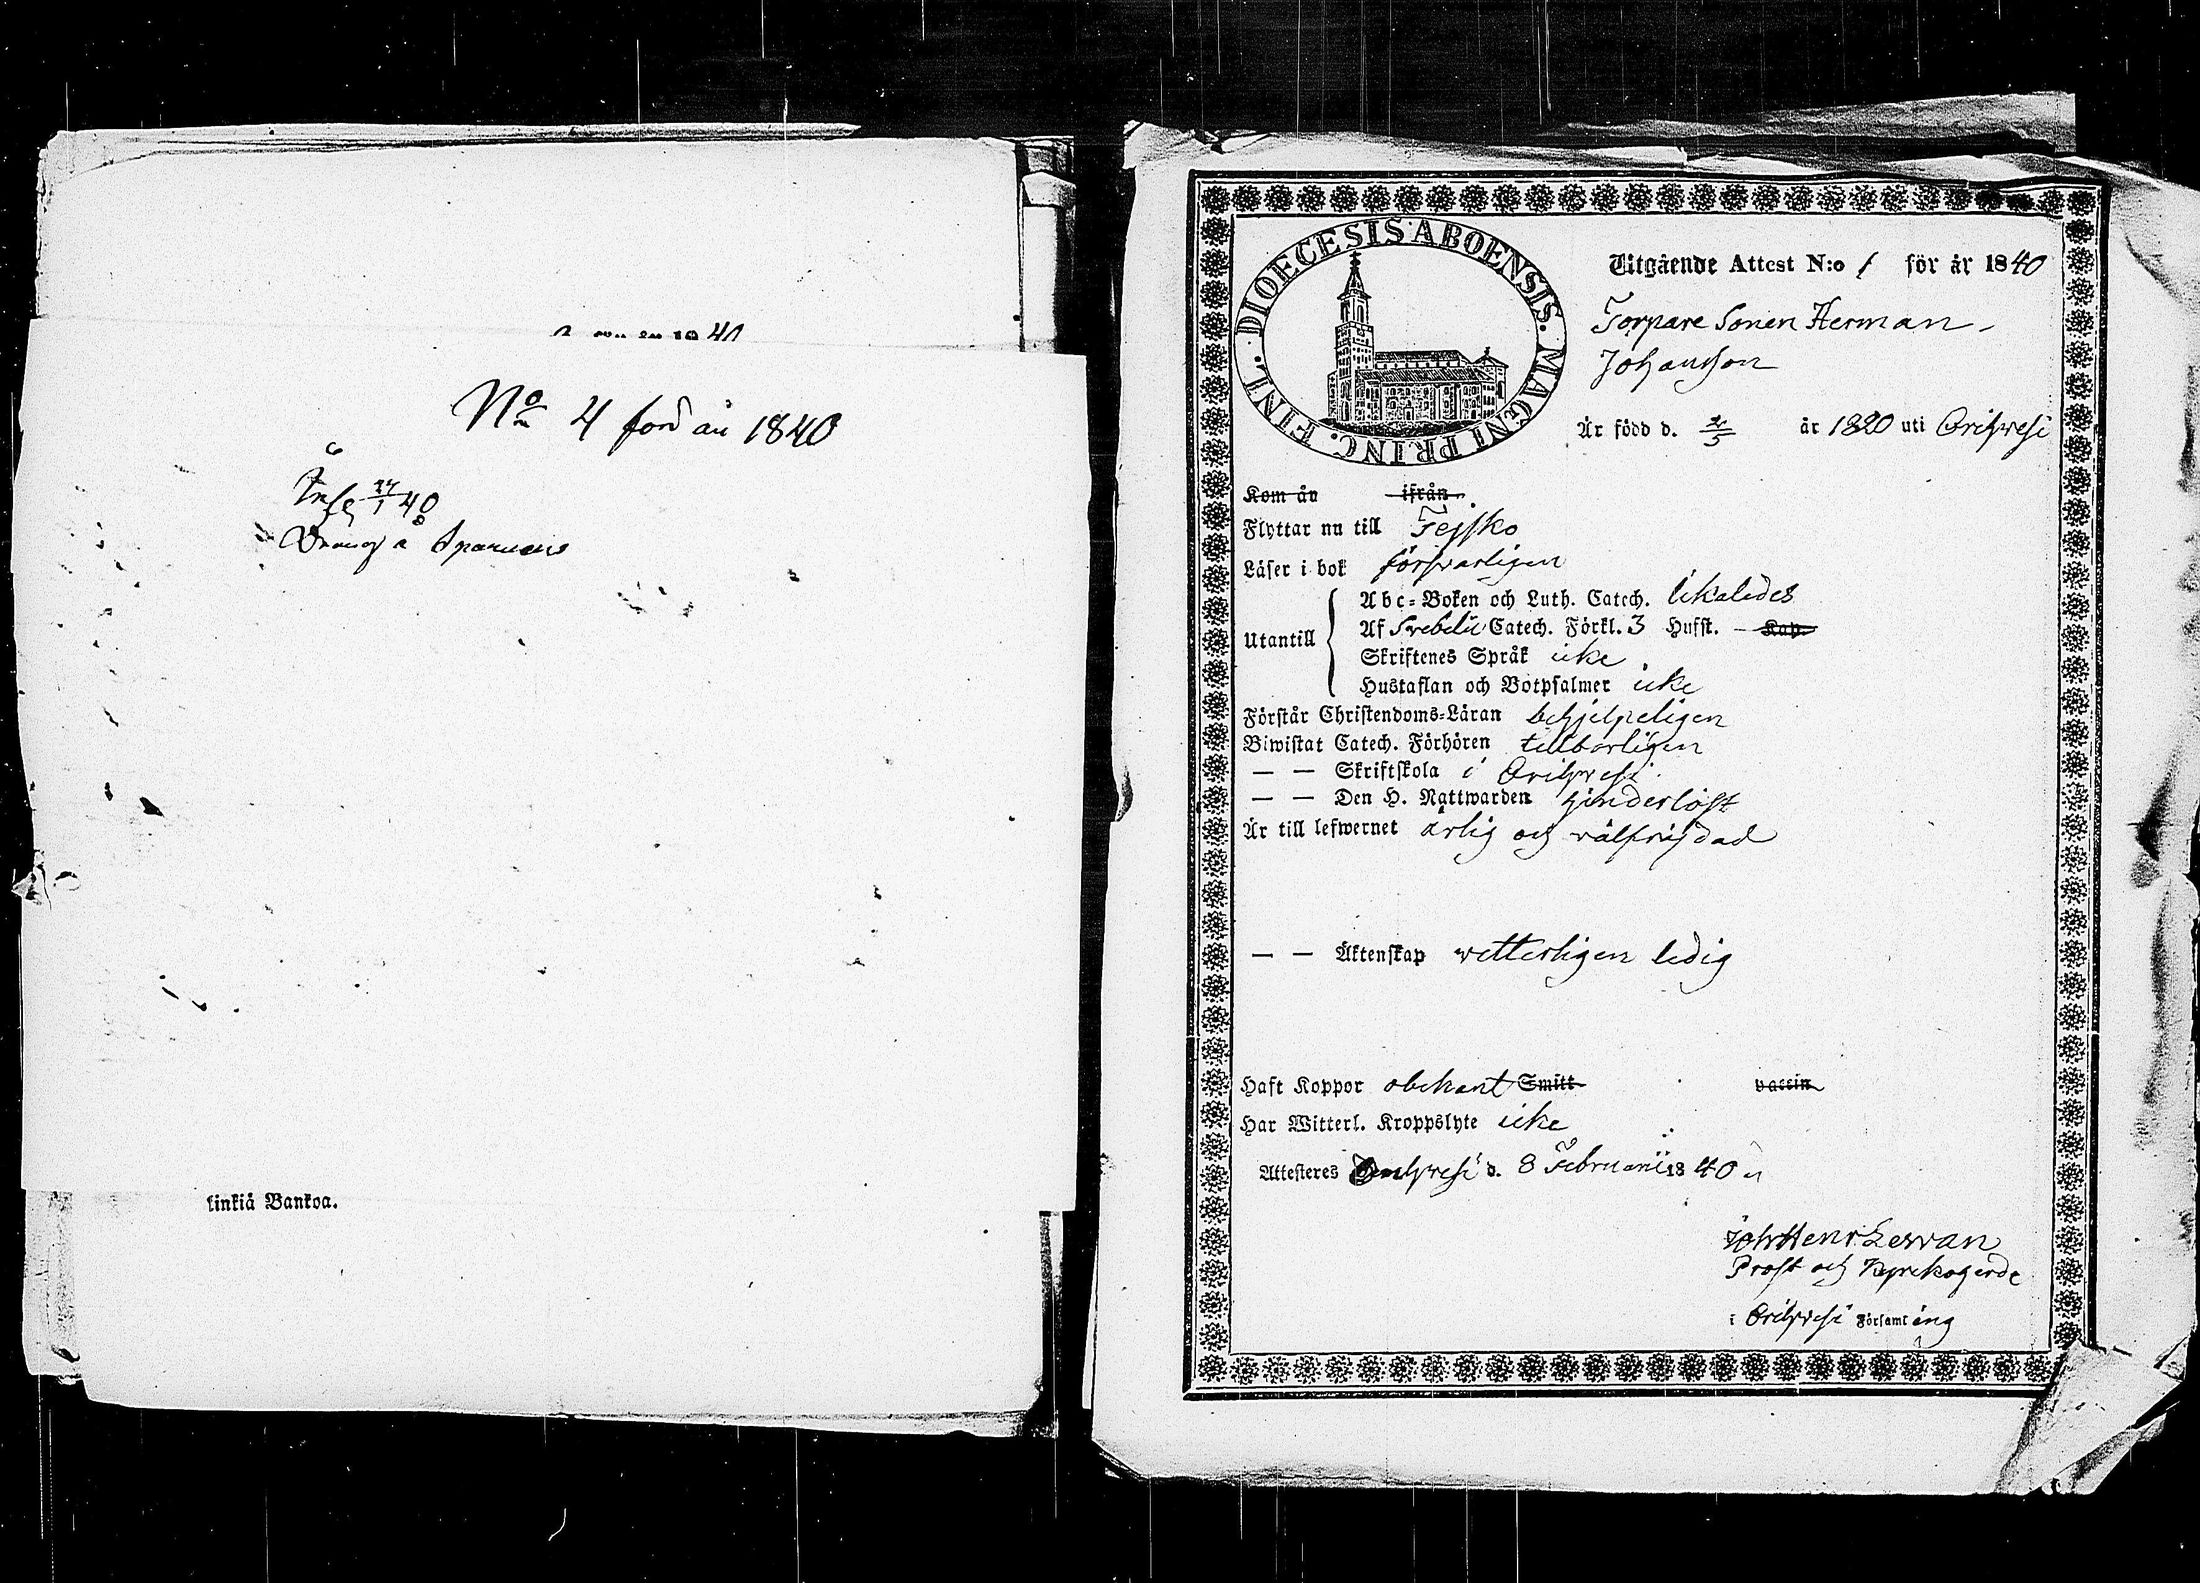 No 4 för år 1840
40
linkiä Bankoa.
DIOECESIS ABOENSIS. MAGNI PRINC. FINL.
Utgående Attest N:o 1 för år 1840
Torpare Sonen Herman
Johansson
Är född d. 5 år 1820 uti Oripvesi
Kom år ifrån
Flyttar nu till Tejsko
Läser i bok försvarligen
Utantill
Abc-Boken och Luth. Catech. likaledes
Af Svebelii Catech. Förkl. 3 Hufst. Kap.
Skriftenes Språk icke
Hustaflan och Botpsalmer icke
Förstår Christendoms-Läran behjelpeligen
Biwistat Catech. Förhören tillbörligen
— — Skriftskola i Oripvesi
— — Den H. Nattwarden hinderlöst
Är till lefwernet ärlig och välfrejdad
— — Äktenskap vetterligen ledig
Haft Koppor obekant Smitt vaccin
Har Witterl. Kroppslyte icke
Attesteres Oripvesi d. 8 Februarii 1840
Joh Henr Levvan
Prost och Kyrkoherde
i Oripvesi Församling